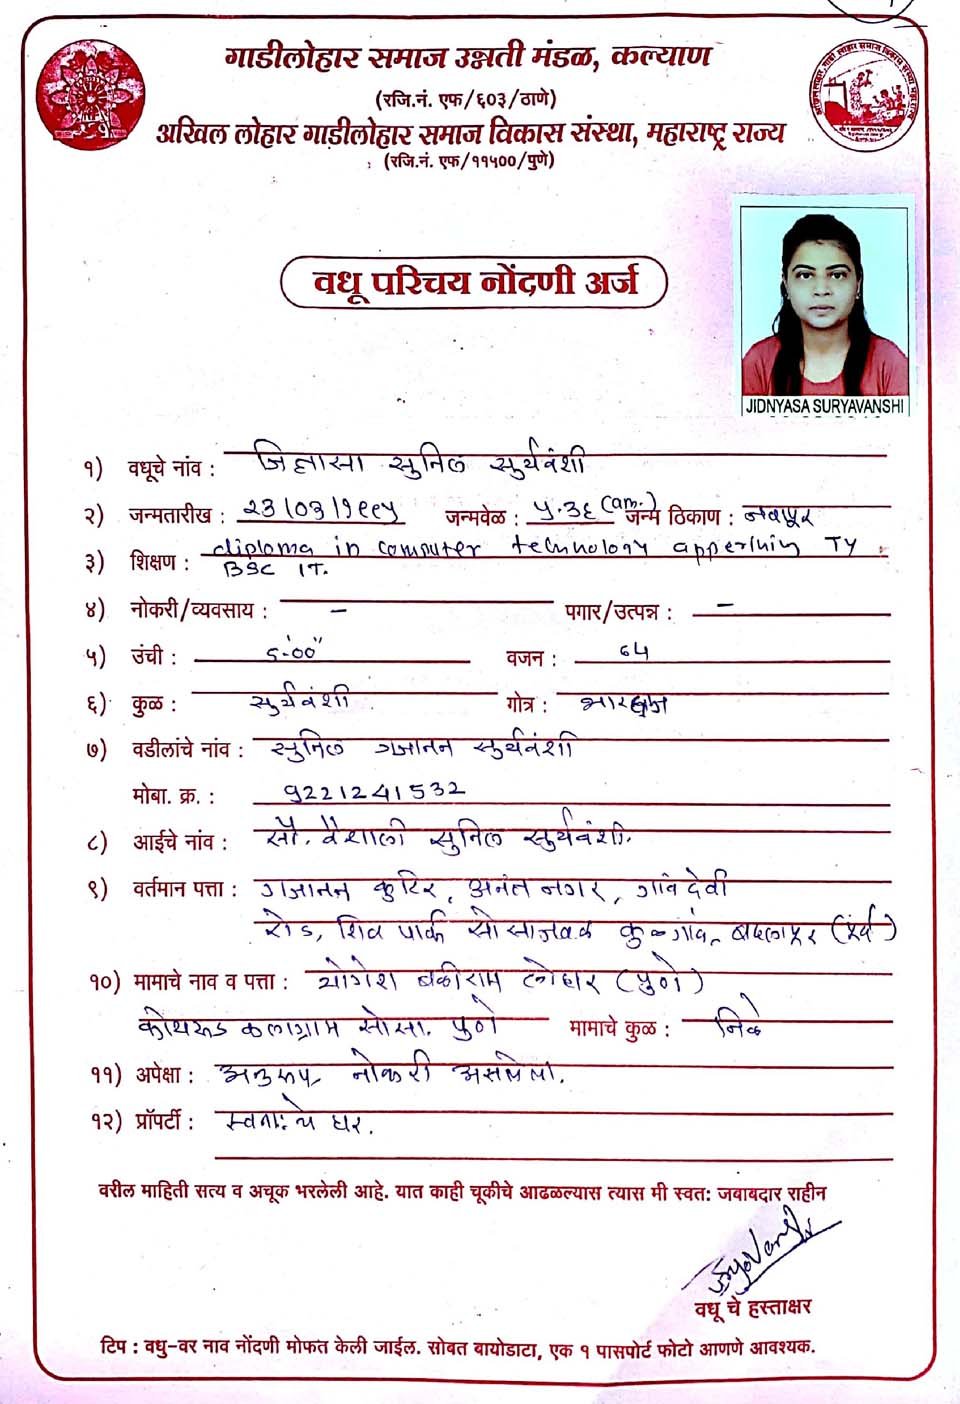 गाडीलोहार समाज उन्नती मंडळ, कल्याण
(रजि.नं. एफ/६०३/ठाणे)
अखिल लोहार गाडीलोहार समाज विकास संस्था, महाराष्ट्र राज्य
(रजि.नं. एफ/११५००/पुणे)
वधू परिचय नोंदणी अर्ज
JIDNYASA SURYAVANSHI
१) वधूचे नांव : जिज्ञासा सुनिल सुर्यवंशी
२) जन्मतारीख : २३/०३/१९९५ जन्मवेळ : ५.३६ (am.) जन्म ठिकाण : नवापूर
३) शिक्षण : diploma in computer technology TY
BSC IT.
४) नोकरी/व्यवसाय : – पगार/उत्पन्न : –
५) उंची : ५'००" वजन : ६५
६) कुळ : सुर्यवंशी. गोत्र : भारद्वाज
७) वडीलांचे नांव : सुनिल गजानन सुर्यवंशी
मोबा. क्र. : 9221241532
८) आईचे नांव : सौ. वैशाली सुनिल सुर्यवंशी.
९) वर्तमान पत्ता : गजानन कुटिर, अनंत नगर, गांवदेवी
रोड, शिव पार्क सोसा कुळगांव, बदलापूर (पूर्व)
१०) मामाचे नाव व पत्ता : योगेश लोहार (पुणे)
कोथरूड कलाग्राम सोसा. पुणे मामाचे कुळ : निकं
११) अपेक्षा : अनुरूप, नोकरी असलेला.
१२) प्रॉपर्टी : स्वताःचे घर.
वरील माहिती सत्य व अचूक भरलेली आहे. यात काही चूकीचे आढळल्यास त्यास मी स्वत: जबाबदार राहीन
वधू चे हस्ताक्षर
टिप : वधु-वर नाव नोंदणी मोफत केली जाईल. सोबत बायोडाटा, एक १ पासपोर्ट फोटो आणणे आवश्यक.